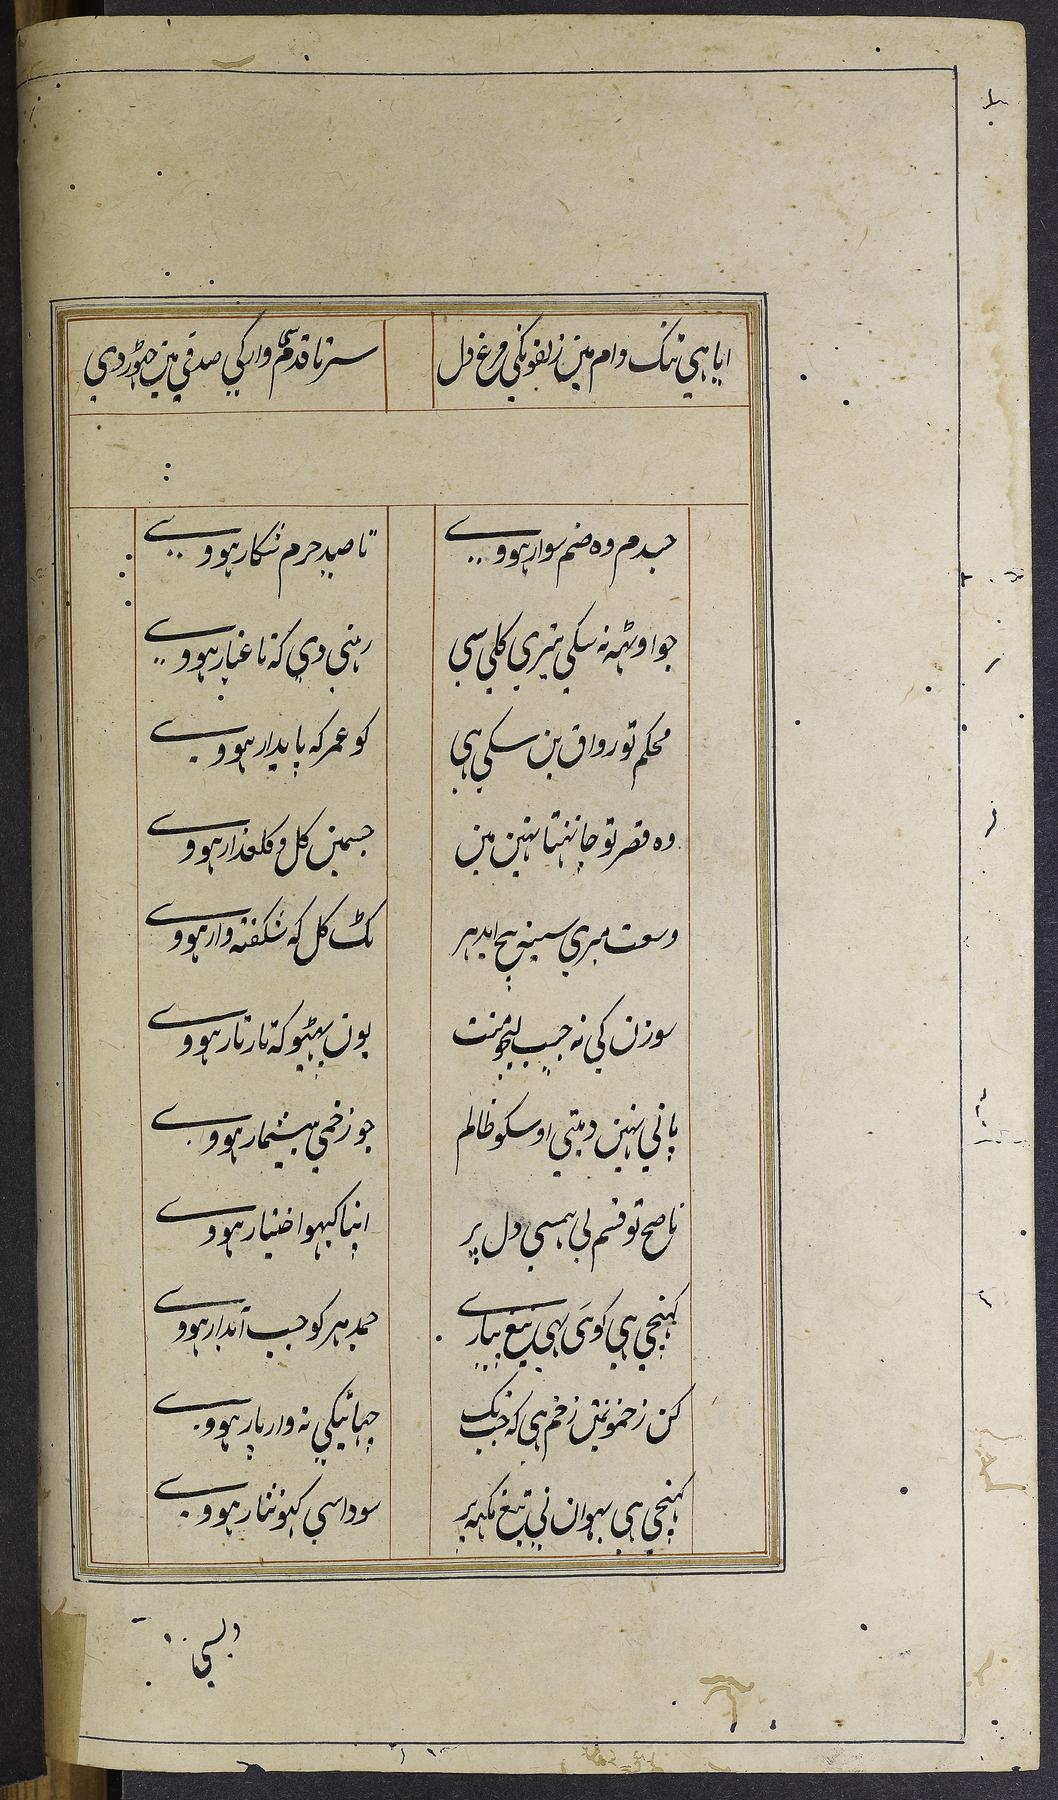 ایا ہی تنک دام مین زلفونکی مرغ دل
سر تا قدم سی وارکی صدقی مین چھوڑ دی
جسدم وہ صنم سوار ہووے
تا صید حرم شکار ہووے
جو اوٹھ نہ سکی تیری کلی سی
رہنی دی کہ تا غبار ہووے
محکم تو رواق بن سکی ہی
کو عمر کہ پایدار ہووے
وہ قصر تو چاہتا نہین مین
جسمین کل و کلعذار ہووے
وسعت میری سینہ بیچ ایدہر
ٹک کل کہ شکفتہ وار ہووے
سوزن کی نہ جیب منت
یون پھٹیو کہ تار تار ہووے
پانی نہین دیتی اوسکو ظالم
جو زخمی بیشمار ہووے
ناصح تو قسم لی ہمسی دل پر
اپنا کبہو اختیار ہووے
کہنچی ہی کوئی بہی تیغ پیارے
جمدہر کو جب آبدار ہووے
کن زخمونمین زخم ہی کہ جب تک
چہاتیکی نہ وار پار ہووے
کہنچی ہی بہوان نی تیغ مکہہ پر
سودا سی کہو نثار ہووے